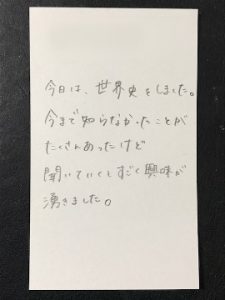 今日は、世界史をしました。
今まで知らなかったことが
たくさんあったけど
聞いていくとすごく興味が
湧きました。